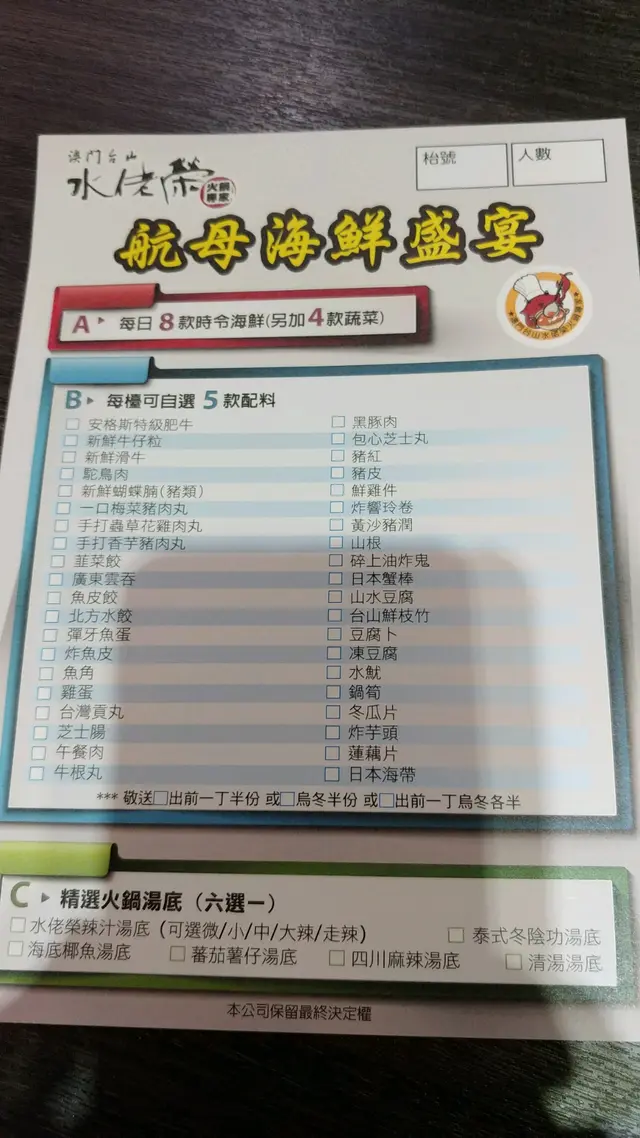 澳門台山
水佬榮
火鍋專家
枱號
人數
航母海鮮盛宴
A 每日8款時令海鮮(另加4款蔬菜)
B 每檯可自選 5 款配料
安格斯特級肥牛
新鮮牛仔粒
新鮮滑牛
鴕鳥肉
新鮮蝴蝶腩(豬類)
一口梅菜豬肉丸
手打蟲草花雞肉丸
手打香芋豬肉丸
韮菜餃
廣東雲吞
魚皮餃
北方水餃
彈牙魚蛋
炸魚皮
魚角
雞蛋
台灣貢丸
芝士腸
午餐肉
牛根丸
黑豚肉
包心芝士丸
豬紅
豬皮
鮮雞件
炸響玲卷
黃沙豬潤
山根
碎上油炸鬼
日本蟹棒
山水豆腐
台山鮮枝竹
豆腐卜
凍豆腐
水魷
鍋筍
冬瓜片
炸芋頭
蓮藕片
日本海帶
*** 敬送□出前一丁半份 或□烏冬半份 或□出前一丁烏冬各半
C 精選火鍋湯底（六選一）
水佬榮辣汁湯底 (可選微/小/中/大辣/走辣)
泰式冬陰功湯底
海底椰魚湯底
蕃茄薯仔湯底
四川麻辣湯底
清湯湯底
本公司保留最終決定權